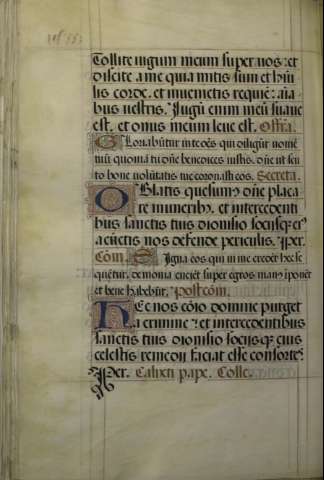 Tollite iugum meum super uos: et
discite a me quia mitis sum et hūi
lis corde. et inuenietis requiē: aīa
bus uestris. Jugū enim meū suaue
est. et onus meum leue est. Offr̄a.
Gloriabūtur in te oēs qui diligūt nomē
tuū quoniā tu dn̄e benedices iusto. dn̄e ut scu
to bone volūtatis tue coronasti eos. Secreta.
Oblatis quesumus dn̄e placa
re muneribꝰ. et intercedenti
bus sanctis tuis dionisio sociisque eiꝰ
a cūctis nos defende periculis. Per.
Cōm. Signa eos qui in me credēt hec se
quētur. demonia eiiciēt super egros manꝰ īponēt
et bene habebūt. Postcōm.
Hec nos cōio domine purget
a crimine: et intercedentibus
sanctis tuis dionisio sociisque eius
celestis remedii faciat esse consortes
Per. Calixti pape. Colle.